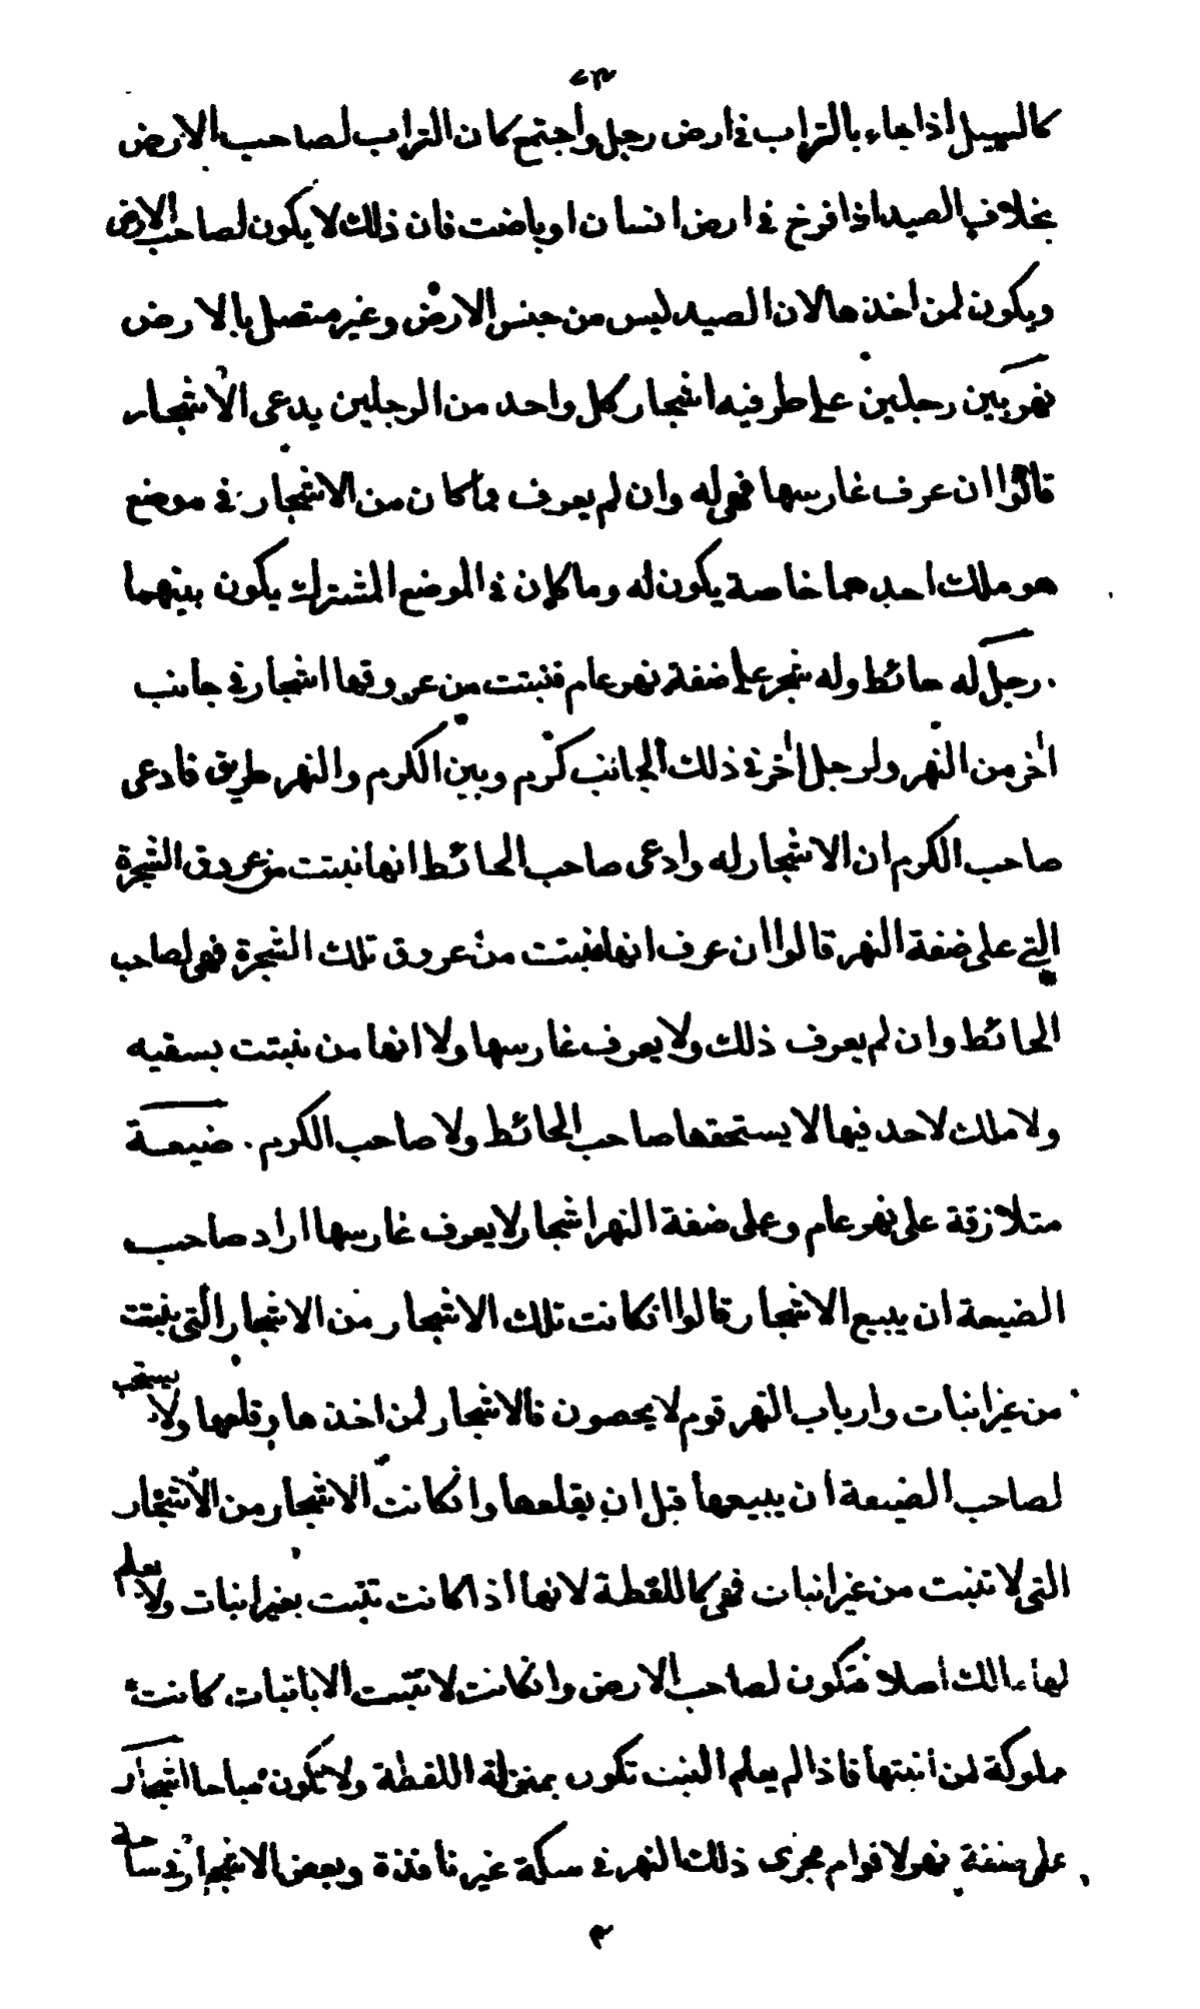 ٤٣
كالسيل اذا جاء بالتراب في ارض رجل واجتمع كان التراب لصاحب الارض
بخلاف الصيد اذا فرخ في ارض انسان او باضت فان ذلك لا يكون لصاحب الارض
ويكون لمن اخذها لان الصيد ليس من جنس الارض وغير متصل بالارض
نهر بين رجلين على طرفيه اشجار كل واحد من الرجلين يدعى الاشجار
قالوا ان عرف غارسها فهي له وان لم يعرف فما كان من الاشجار في موضع
هو ملك احدهما خاصة يكون له وما كان في الموضع المشترك يكون بينهما
رجل له حائط وله شجر على ضفة نهر عام فنبتت من عروقها اشجار في جانب
اخر من النهر ولرجل اخر في ذلك الجانب كرم وبين الكرم والنهر طريق فادعى
صاحب الكرم ان الاشجار له وادعى صاحب الحائط انها نبتت من عروق الشجرة
التي على ضفة النهر قالوا ان عرف انها نبتت من عروق تلك الشجرة فهي لصاحب
الحائط وان لم يعرف ذلك ولا يعرف غارسها ولا انها من نبتت بسقيه
ولا ملك لاحد فيها لا يستحقها صاحب الحائط ولا صاحب الكرم . ضيعة
متلازقة على نهر عام وعلى ضفة النهر اشجار لا يعرف غارسها اراد صاحب
الضيعة ان يبيع الاشجار قالوا انكانت تلك الاشجار من الاشجار التي ينبتت
من غير انبات وارباب النهر قوم لا يحصون فالاشجار لمن اخذها وقلعها ولا يستحب
لصاحب الضيعة ان يبيعها قبل ان يقلعها وانكانت الاشجار من الاشجار
التي لا تنبت من غير انبات فهي كاللقطة لانها اذا كانت تنبت بغير انبات ولا يعلم
لها مالك اصلا فتكون لصاحب الارض وانكانت لا تنبت الا بانبات كانت
ملوكة لمن انبتها فاذا لم يعلم المنبت تكون بمنزلة اللقطة ولا تكون مباحا اشجار
على ضفة نهر لاقوام مجرى ذلك النهر في سكة غير نافذة وبعض الاشجار في ساحة